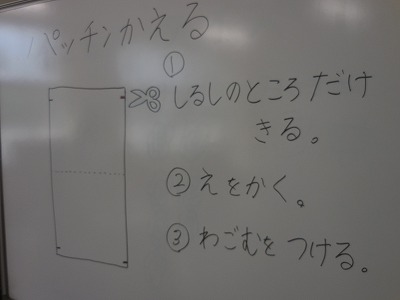 パッチンかえる
①
しるしのところだけ
きる。
②えをかく。
③わごむをつける。